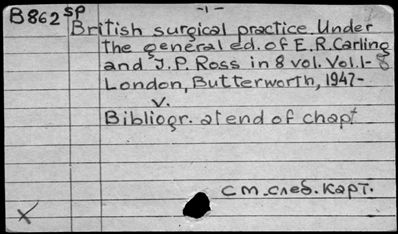 -1-
B862 SP
British surgical practice. Under
the general ed. of E.R. Carling
and J.P. Ross in 8 vol. Vol. 1-8
London, Butterworth, 1947-
v.
Bibliogr. at end of chapt
см. след. карт.
X